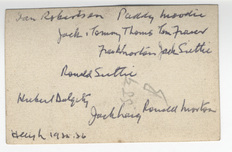 Ian Robertson Paddy Moodie
Jack & Tommy Thoms Tom Fraser
Fred Norton Jack Suttie
Ronald Suttie
Herbert Dalgety
Jack Haig Ronald Morton